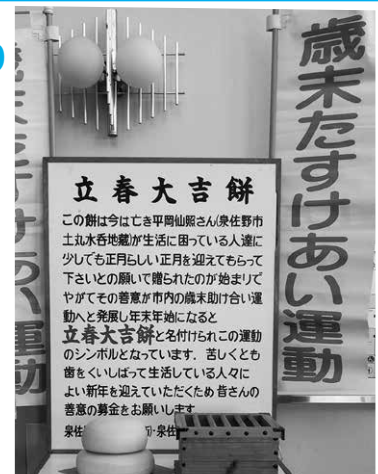 歳末たすけあい運動
立春大吉餅
この餅は今は亡き平岡仙照さん(泉佐野市
土丸水呑地蔵)が生活に困っている人達に
少しでも正月らしい正月を迎えてもらって
下さいとの願いで贈られたのが始まりで
やがてその善意が市内の歳末助け合い運
動へと発展し年末年始になると
立春大吉餅と名付けられこの運動
のシンボルとなっています。苦しくとも
歯をくいしばって生活している人々に
よい新年を迎えていただくため皆さんの
善意の募金をお願いします
泉佐
泉佐